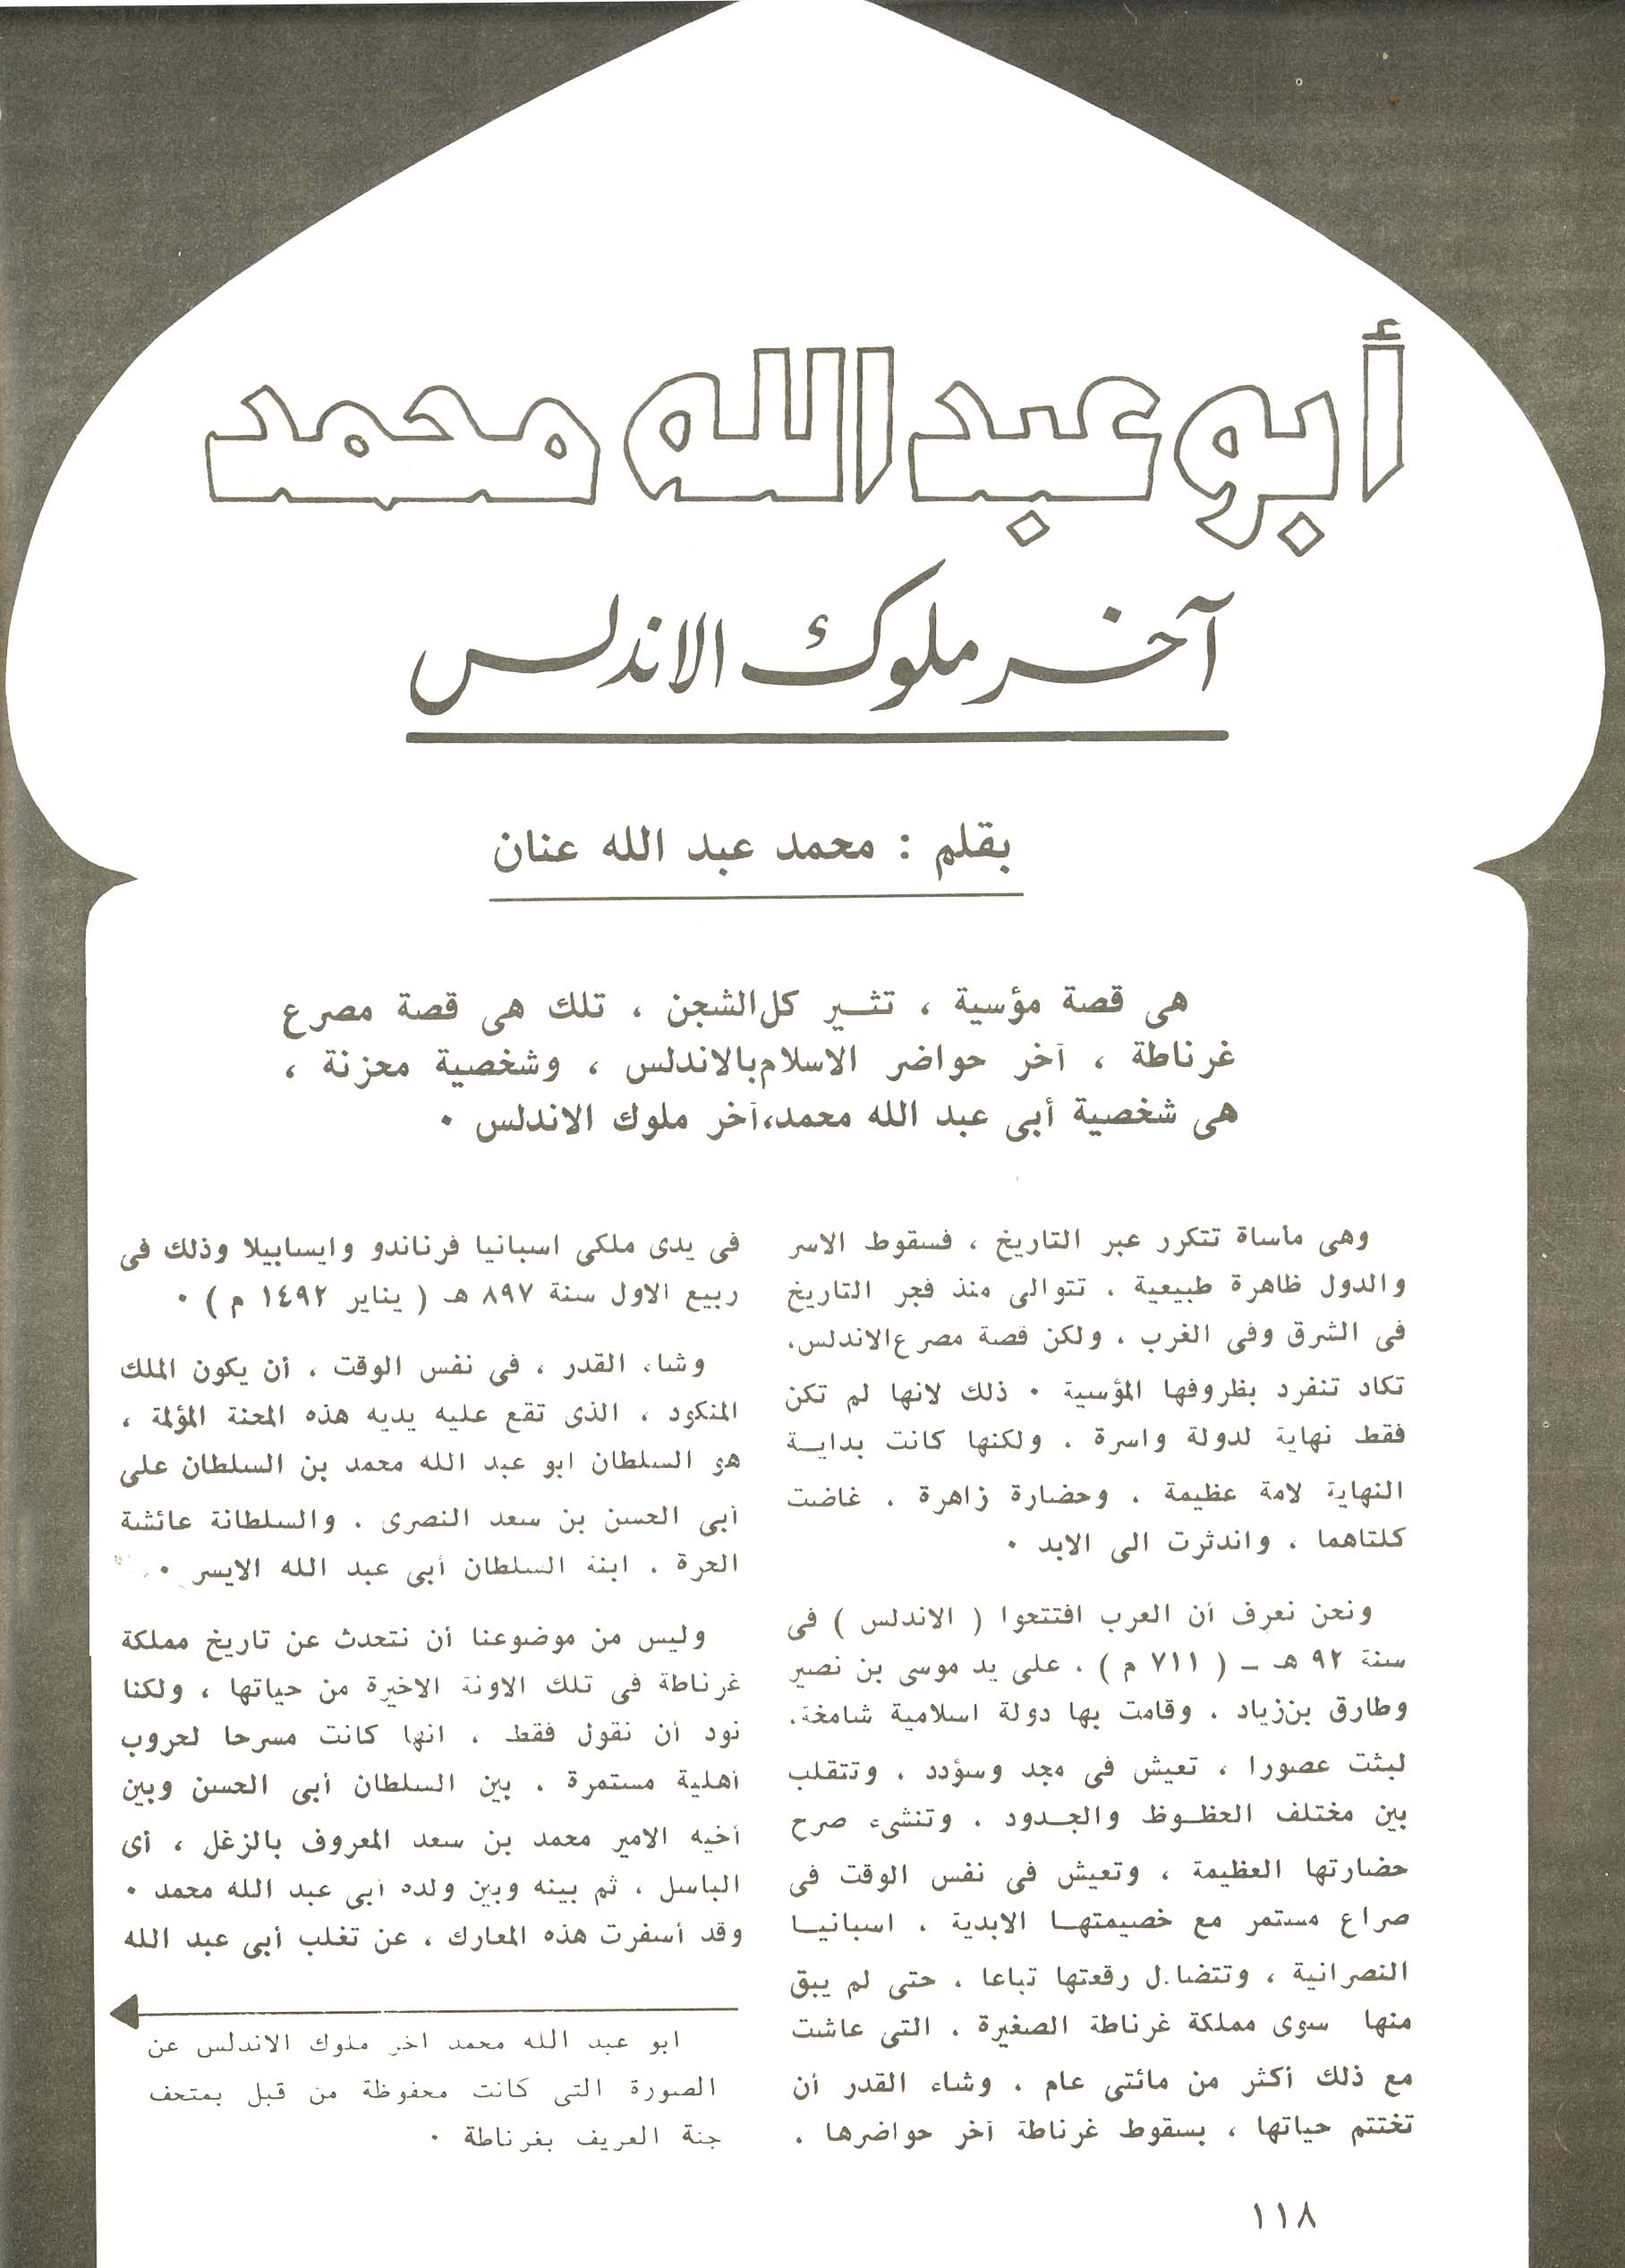 أبو عبد الله محمد
آخر ملوك الاندلس
بقلم : محمد عبد الله عنان
هى قصة مؤسية ، تثــير كل الشجن ، تلك هى قصة مصرع
غرناطة ، آخر حواضر الاسلام بالاندلس ، وشخصية محزنة ،
هى شخصية أبى عبد الله محمد،آخر ملوك الاندلس ٠
وهى مأساة تتكرر عبر التاريخ ، فسقوط الاسر
والدول ظاهرة طبيعية ، تتوالى منذ فجر التاريخ
فى الشرق وفى الغرب ، ولكن قصة مصرع الاندلس،
تكاد تنفرد بظروفها المؤسية ٠ ذلك لانها لم تكن
فقط نهاية لدولة واسرة ، ولكنها كانت بدايــة
النهاية لامة عظيمة ، وحضارة زاهرة ، غاضت
كلتاهما ، واندثرت الى الابد ٠
ونحن نعرف أن العرب افتتحوا ( الاندلس ) فى
سنة ٩٢ هـ – ( ٧١١ م ) ، على يد موسى بن نصير
وطارق بن زياد ، وقامت بها دولة اسلامية شامخة،
لبثت عصورا ، تعيش فى مجد وسؤدد ، وتتقلب
بين مختلف الحظــوظ والجــدود ، وتنشىء صرح
حضارتها العظيمة ، وتعيش فى نفس الوقت فى
صراع مستمر مع خصيمتهــا الابدية ، اسبانيــا
النصرانية ، وتتضاءل رقعتها تباعا ، حتى لم يبق
منها سوى مملكة غرناطة الصغيرة ، التى عاشت
مع ذلك أكثر من مائتى عام ، وشاء القدر أن
تختتم حياتها ، بسقوط غرناطة آخر حواضرها ،
فى يدى ملكى اسبانيا فرناندو وايسابيلا وذلك فى
ربيع الاول سنة ٨٩٧ هـ ( يناير ١٤٩٢ م ) ٠
وشاء القدر ، فى نفس الوقت ، أن يكون الملك
المنكود ، الذى تقع عليه يديه هذه المحنة المؤلمة ،
هو السلطان ابو عبد الله محمد بن السلطان على
أبى الحسن بن سعد النصرى ، والسلطانة عائشة
الحرة ، ابنة السلطان أبى عبد الله الايسر ٠
وليس من موضوعنا أن نتحدث عن تاريخ مملكة
غرناطة فى تلك الاونة الاخيرة من حياتها ، ولكنا
نود أن نقول فقط ، انها كانت مسرحا لحروب
أهلية مستمرة ، بين السلطان أبى الحسن وبين
أخيه الامير محمد بن سعد المعروف بالزغل ، أى
الباسل ، ثم بينه وبين ولده أبى عبد الله محمد ٠
وقد أسفرت هذه المعارك ، عن تغلب أبى عبد الله
ابو عبد الله محمد اخر ملوك الاندلس عن
الصورة التى كانت محفوظة من قبل بمتحف
جنة العريف بغرناطة ٠
١١٨